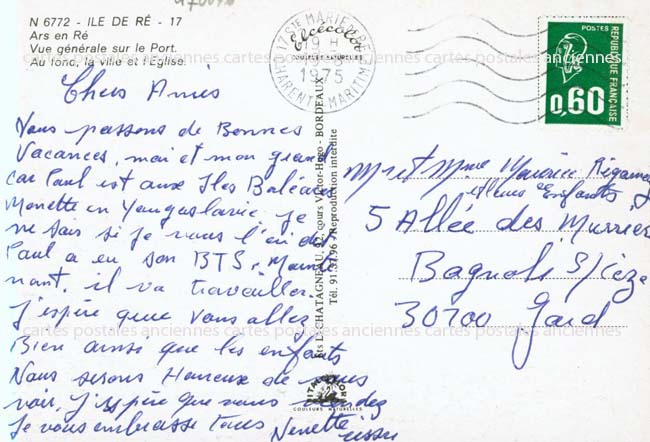 N 6772 - ILE DE RÉ - 17
Ars en Ré
Vue générale sur le Port.
Au fond, la ville et l'Église.
Chers Amis
Nous passons de Bonnes
Vacances, moi et mon grand
car Paul est aux Iles Baléares
Monette en Yougoslavie, je
ne sais si je vous l'ai dit
Paul a eu son BTS, Mainte
nant, il va travailler.
J'espère que vous allez
Bien ainsi que les enfants
Nous serons Heureux de vous
voir, j'espère que vous viendez
Je vous embrasse tous Nenette
Elcécolor
COULEURS NATURELLES
Ets L. CHATAGNEAU, 92, cours Victor-Hugo - BORDEAUX
Tél. 91.37.96 - Reproduction interdite
COULEURS NATURELLES
17 STE MARIE DE RE
19 H
1975
CHARENTE MARITIME
REPUBLIQUE FRANÇAISE
0,60
Mr et Mme Maurice
et leurs Enfants
5 Allée des Muriers
Bagnols S/Ceze
30200 Gard
cartes postales anciennes cartes postales anciennes cartes postales anciennes